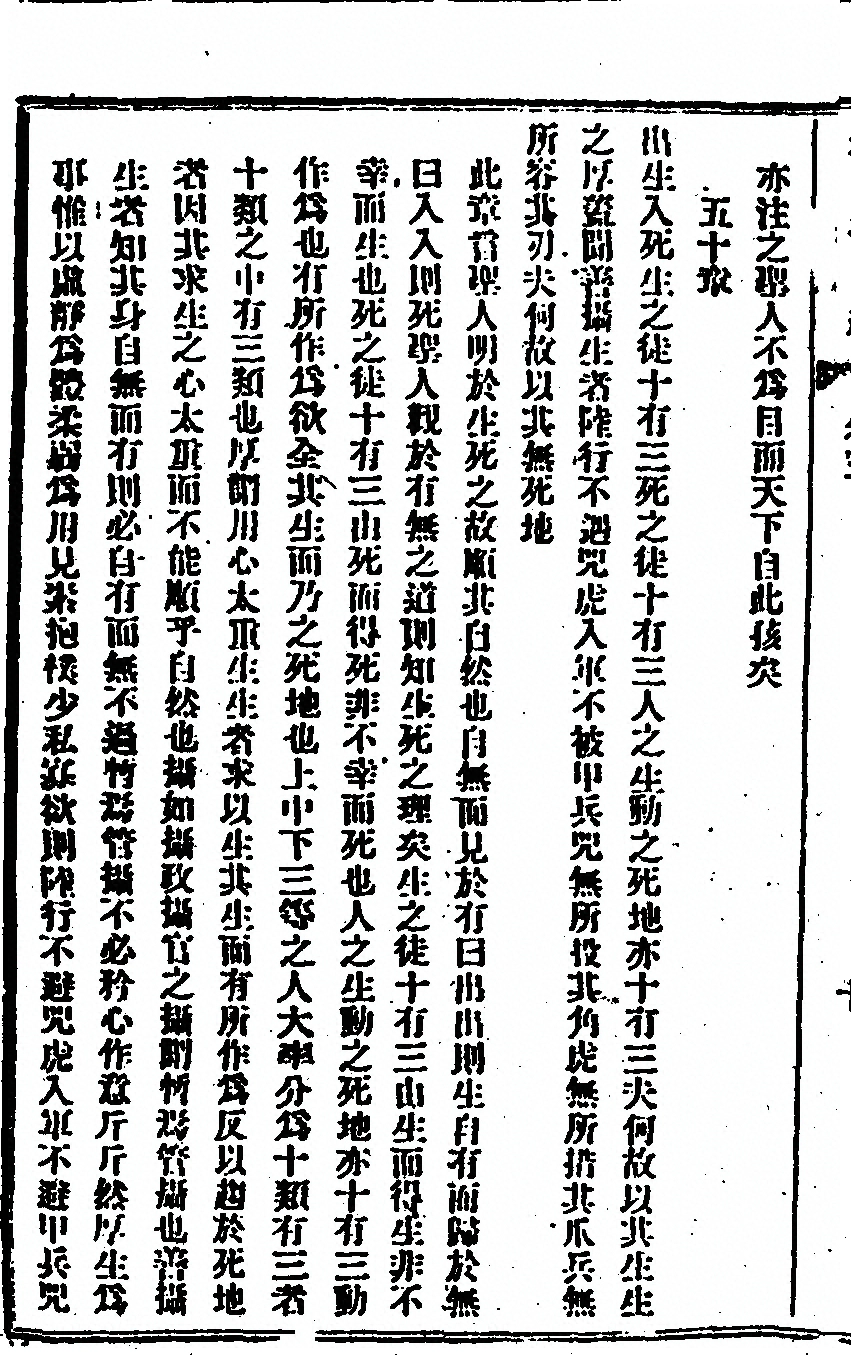 亦注之聖人不爲目而天下自此孩矣
五十章
出生入死生之徒十有三死之徒十有三人之生動之死地亦十有三夫何故以其生生
之厚蓋聞善攝生者陸行不遇兕虎入軍不被甲兵兕無所投其角虎無所措其爪兵無
所容其刃夫何故以其無死地
此章言聖人明於生死之故順其自然也自無而見於有曰出出則生自有而歸於無
曰入入則死聖人觀於有無之道則知生死之理矣生之徒十有三由生而得生非不
幸而生也死之徒十有三由死而得死非不幸而死也人之生動之死地亦十有三動
作爲也有所作爲欲全其生而乃之死地也上中下三等之人大率分爲十類有三者
十類之中有三類也厚謂用心太重生生者求以生其生而有所作爲反以趨於死地
者因其求生之心太重而不能順乎自然也攝如攝政攝官之攝謂暫爲管攝也善攝
生者知其身自無而有則必自有而無不過暫爲管攝不必矜心作意斤斤然厚生爲
事惟以虛靜爲體柔弱爲用見素抱樸少私寡欲則陸行不避兕虎入軍不避甲兵兕